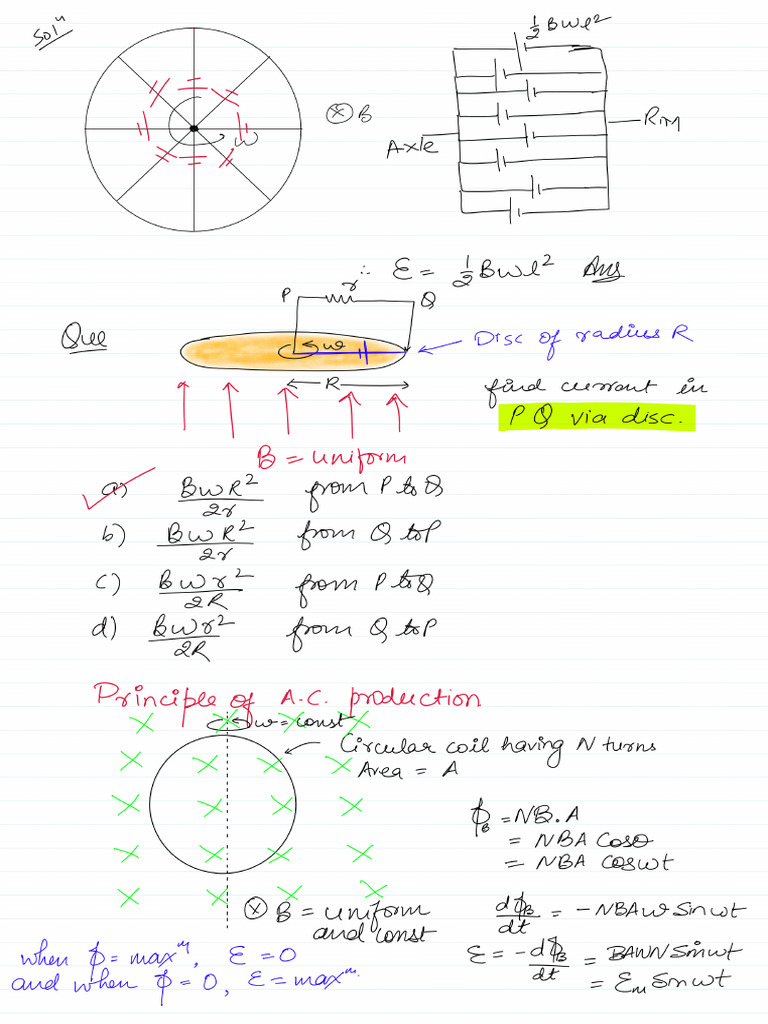 Solⁿ
½Bωl²
ω
⊗ B
Axle
Rim
∴ ε = ½Bωl² Ans
P r Q
Que
ω
Disc of radius R
R
find current in
PQ via disc.
B = uniform
a) BωR²/2r from P to Q
b) BωR²/2r from Q to P
c) Bωr²/2R from P to Q
d) Bωr²/2R from Q to P
Principle of A.C. production
ω = const
Circular coil having N turns
Area = A
ϕ_B = NB.A
= NBA Cosθ
= NBA cosωt
⊗ B = uniform
and const
dϕ_B/dt = - NBAω Sinωt
ε = -dϕ_B/dt = BAωN Sinωt
= ε_m Sinωt
when ϕ = maxᵐ, ε = 0
and when ϕ = 0, ε = maxᵐ.